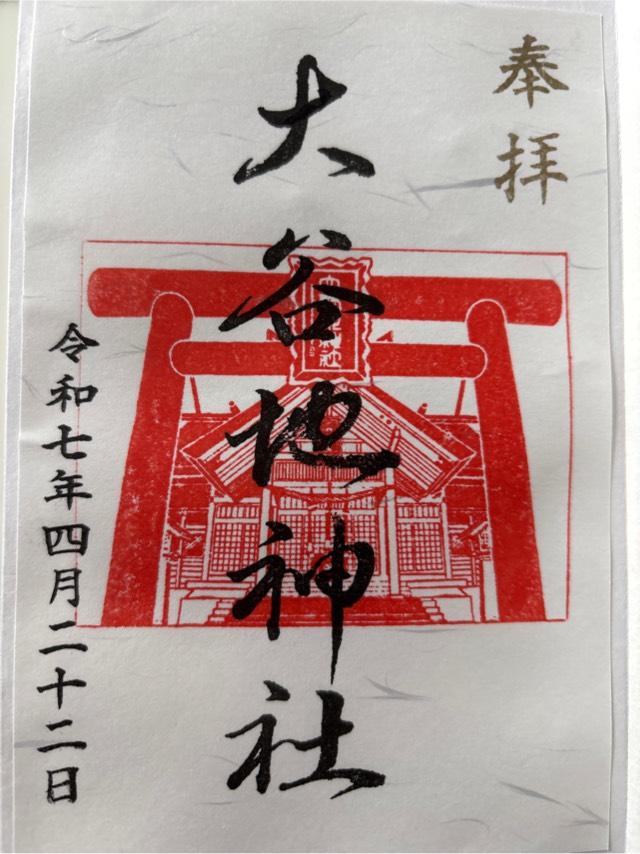 奉拝
大谷地神社
令和七年四月二十二日